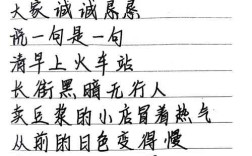 大家诚诚恳恳
说一句是一句
清早上火车站
长街黑暗无行人
卖豆浆的小店冒着热气
从前的日色变得慢